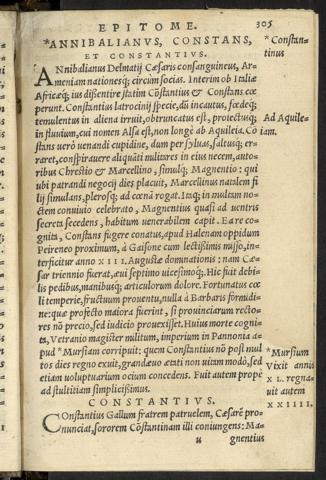 EPITOME. 305
*ANNIBALIANVS, CONSTANS,
ET CONSTANTIVS.
ANnibalianus Delmatij Cæsaris consanguineus, Ar-
meniam nationesq; circùm socias. Interim ob Italiæ
Africæq; ius dissentire statim Cōstantius & Constans cœ
perunt. Constantius latrocinij specie, dũ incautus, fœdeq;
temulentus in aliena irruit, obtruncatus est, proiectusq;
in fluuium, cui nomen Alsa est, non longè ab Aquileia. Cō
stans uerò uenandi cupidine, dum per syluas, saltusq; er-
raret, conspirauere aliquāti militares in eius necem, auto-
ribus Chrestio & Marcellino, simulq; Magnentio: qui
ubi patrandi negocij dies placuit, Marcellinus natalem fi
lij simulans, plerosq; ad cœnā rogat. Itaq; in multam no-
ctem conuiuio celebrato, Magnentius quasi ad uentris
secreta secedens, habitum uenerabilem capit. Ea re co-
gnita, Constans fugere conatus, apud Halenam oppidum
Peireneo proximum, à Gaisone cum lectißimis misso, in-
terficitur anno XIII. Augustæ dominationis: nam Cæ-
sar triennio fuerat, æui septimo uicesimoq;. Hic fuit debi-
lis pedibus, manibusq; articulorum dolore. Fortunatus cœ
li temperie, fructuum prouentu, nulla à Barbaris formidi-
ne: quæ profectò maiora fierent, si prouinciarum recto-
res nō precio, sed iudicio prouexisset. Huius morte cogni-
ta, Vetranio magister militum, imperium in Pannonia a-
pud *Mursiam corripuit: quem Constantius nō post mul
tos dies regno exuit, grandæuo ætati non uitam modò, sed
etiam uoluptarium ocium concedens. Fuit autem propè
ad stultitiam simplicißimus.
CONSTANTIVS.
COnstantius Gallum fratrem patruelem, Cæsarē pro-
nunciat, sororem Cōstantinam illi coniungens: Ma-
u gnentius
*Constan-
tinus
Ad Aquile-
iam.
*Mursium
Vixit annis
XL. regna-
uit autem
XXIIII.